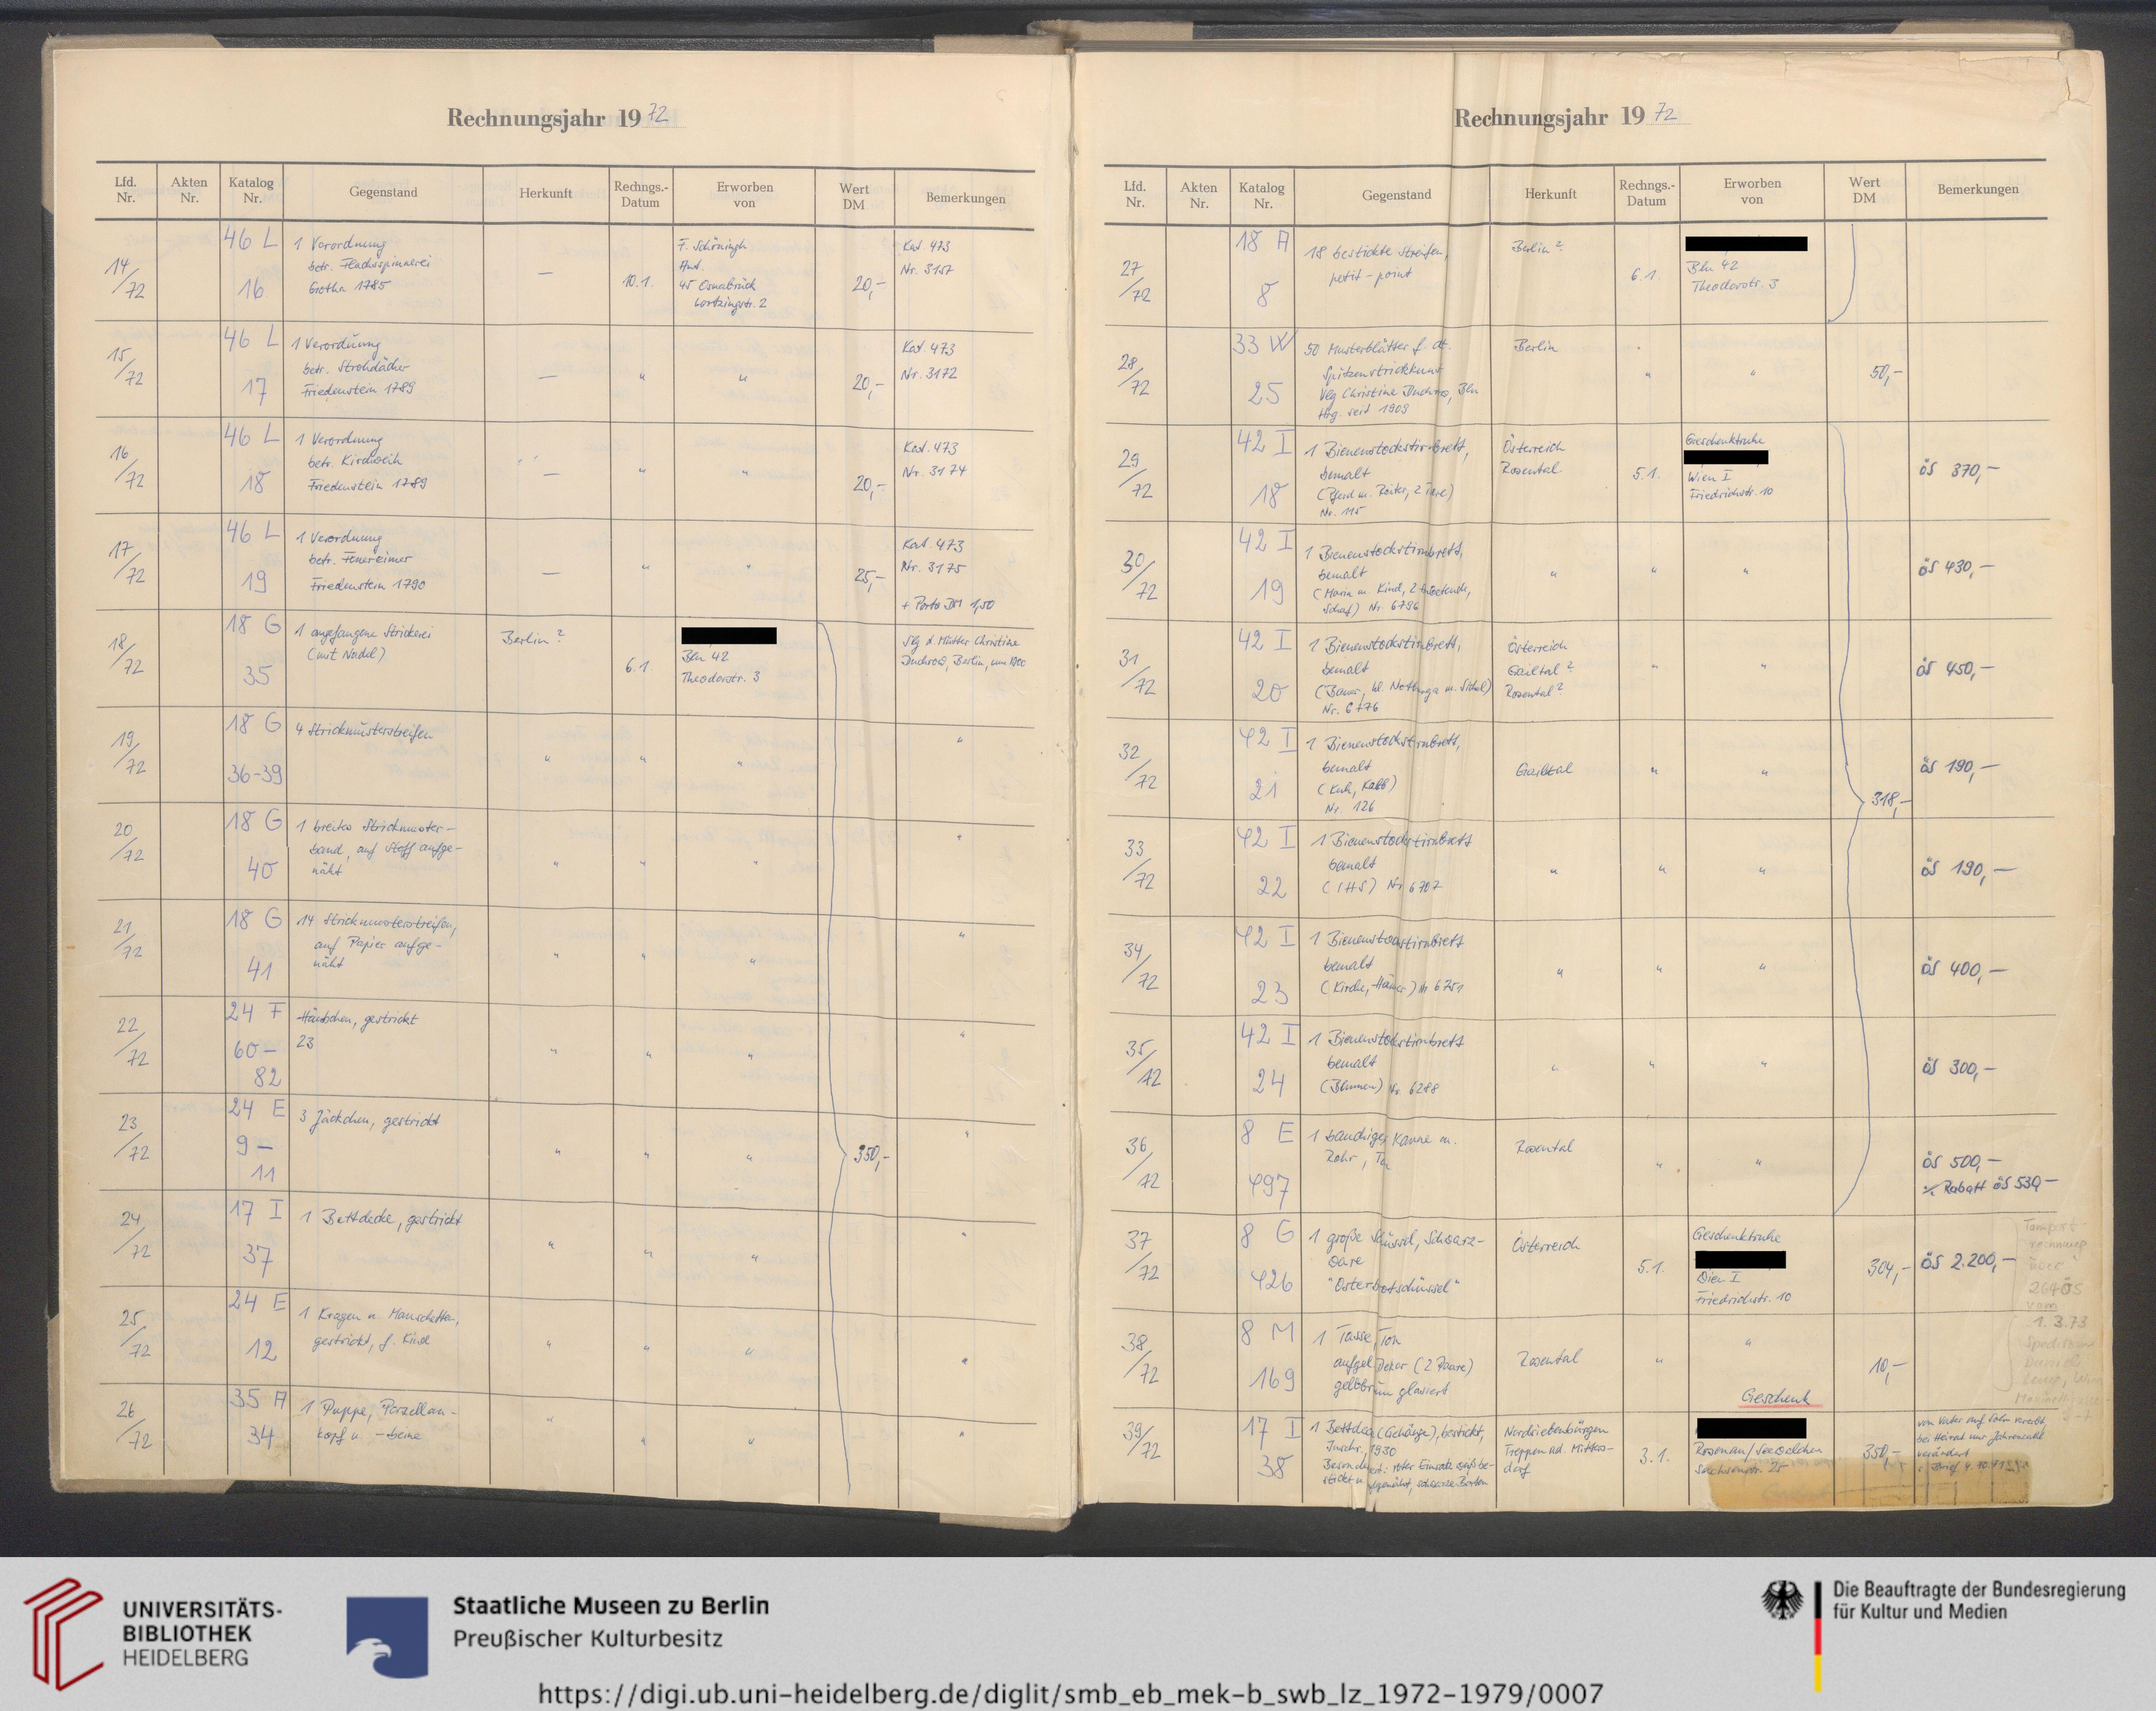 Rechnungsjahr 1972
Lfd. Nr.
Akten Nr.
Katalog Nr.
Gegenstand
Herkunft
Rechngs.-Datum
Erworben von
Wert DM
Bemerkungen
14/72
46 L
16
1 Verordnung
betr. Flachsspinnerei
Gotha 1785
—
10.1.
F. Schöningh
Ant.
45 Osnabrück
Lortzingstr. 2
20,-
Kat. 473
Nr. 3157
15/72
46 L
17
1 Verordnung
betr. Strohdächer
Friedenstein 1789
—
"
"
20,-
Kat. 473
Nr. 3172
16/72
46 L
18
1 Verordnung
betr. Kirchweih
Friedenstein 1789
—
"
"
20,-
Kat. 473
Nr. 3174
17/72
46 L
19
1 Verordnung
betr. Feuereimer
Friedenstein 1790
—
"
"
25,-
Kat. 473
Nr. 3175
+ Porto DM 1,50
18/72
18 G
35
1 angefangene Strickerei
(mit Nadel)
Berlin?
6.1.
Bln 42
Theodorstr. 3
Slg d. Mutter Christine
Duchrow, Berlin, um 1900
19/72
18 G
36-39
4 Strickmusterstreifen
"
"
"
"
20/72
18 G
40
1 breites Strickmuster-
band, auf Stoff aufge-
näht
"
"
"
"
21/72
18 G
41
14 Strickmusterstreifen,
auf Papier aufge-
näht
"
"
"
"
22/72
24 F
60-
82
Häubchen, gestrickt
23
"
"
"
"
23/72
24 E
9-
11
3 Jäckchen, gestrickt
"
"
"
350,-
"
24/72
17 I
37
1 Bettdecke, gestrickt
"
"
"
"
25/72
24 E
12
1 Kragen u. Manschetten,
gestrickt, f. Kind
"
"
"
"
26/72
35 A
34
1 Puppe, Porzellan-
kopf u. -beine
"
"
"
"
Rechnungsjahr 1972
Lfd. Nr.
Akten Nr.
Katalog Nr.
Gegenstand
Herkunft
Rechngs.-Datum
Erworben von
Wert DM
Bemerkungen
27/72
18 A
8
18 bestickte Streifen,
petit-point
Berlin?
6.1.
Bln 42
Theodorstr. 3
28/72
33 W
25
50 Musterblätter f. dt.
Spitzenstrickkunst
Vlg Christine Duchrow, Bln
Hrg. seit 1909
Berlin
"
"
50,-
29/72
42 I
18
1 Bienenstockstirnbrett,
bemalt
(Pferd m. Reiter, 2 Tiere)
Nr. 115
Österreich
Rosental
5.1.
Geschenktruhe
Wien I
Friedrichstr. 10
öS 370,-
30/72
42 I
19
1 Bienenstockstirnbrett,
bemalt
(Maria m. Kind, 2 Anbetende,
Schaf) Nr. 6796
"
"
"
öS 430,-
31/72
42 I
20
1 Bienenstockstirnbrett,
bemalt
(Bauer, hl. Notburga m. Sichel)
Nr. 6776
Österreich
Gailtal?
Rosental?
"
"
öS 450,-
32/72
42 I
21
1 Bienenstockstirnbrett,
bemalt
(Kuh, Kalb)
Nr. 126
Gailtal
"
"
318,-
öS 190,-
33/72
42 I
22
1 Bienenstockstirnbrett
bemalt
(IHS) Nr 6707
"
"
"
öS 190,-
34/72
42 I
23
1 Bienenstockstirnbrett
bemalt
(Kirche, Häuser) Nr 6751
"
"
"
öS 400,-
35/72
42 I
24
1 Bienenstockstirnbrett
bemalt
(Blumen) Nr. 6288
"
"
"
öS 300,-
36/72
8 E
497
1 bauchige Kanne m.
Rohr, Ton
Rosental
"
"
öS 500,-
% Rabatt öS 530,-
37/72
8 G
426
1 große Schüssel, Schwarz-
ware
"Osterbrotschüssel"
Österreich
5.1.
Geschenktruhe
Wien I
Friedrichstr. 10
304,-
öS 2.200,-
Transport-
rechnung
über
2640 öS
vom
1.3.73
38/72
8 M
169
1 Tasse, Ton
aufgel. Dekor (2 Paare)
gelbbraun glasiert
Rosental
"
"
Geschenk
10,-
39/72
17 I
38
1 Bettdecke (Gehänge), bestickt,
Inschr., 1930
Nordsiebenbürgen
Treppen ad. Mitters-
dorf
3.1.
Rosenau/Seewalchen
Sachsenstr. 25
350,-
von Vater auf Sohn vererbt,
bei Heirat nur Jahreszahl
verändert
UNIVERSITÄTS-
BIBLIOTHEK
HEIDELBERG
Staatliche Museen zu Berlin
Preußischer Kulturbesitz
Die Beauftragte der Bundesregierung
für Kultur und Medien
https://digi.ub.uni-heidelberg.de/diglit/smb_eb_mek-b_swb_lz_1972-1979/0007